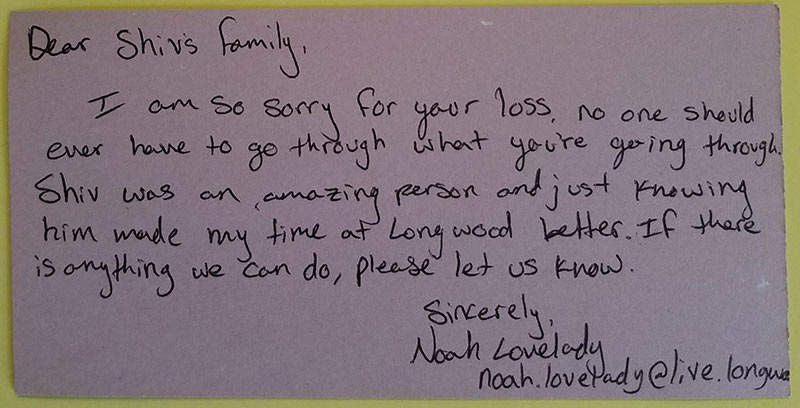 Dear Shiv's family,
I am so sorry for your loss, no one should
ever have to go through what you're going through.
Shiv was an amazing person and just knowing
him made my time at Longwood better. If there
is anything we can do, please let us know.
Sincerely,
Noah Lovelady
noah.lovelady@live.longw